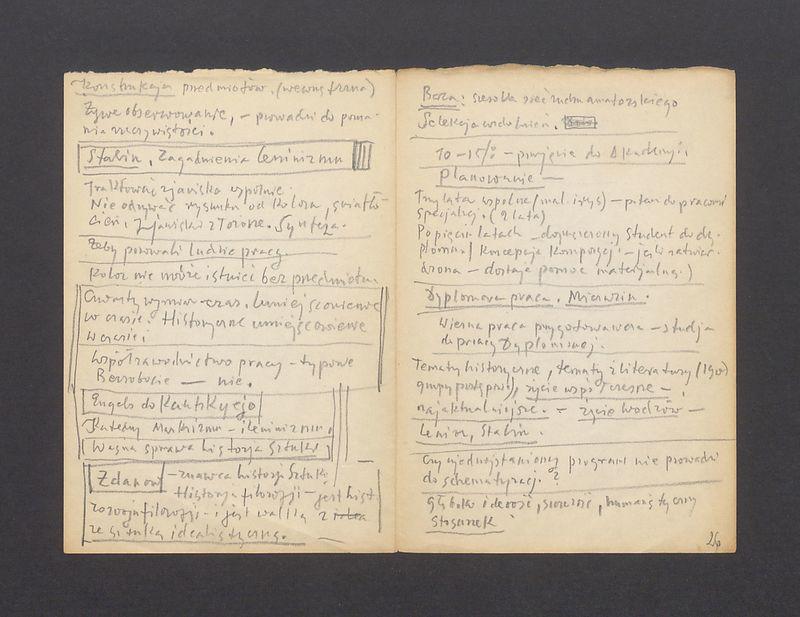 Konstrukcja przedmiotów. (wewnętrzna)
Żywe obserwowanie, – prowadzi do pozna-
nia rzeczywistości.
Stalin, Zagadnienia Leninizmu
Traktować zjawiska wspólnie.
Nie odrywać rysunku od koloru, światło
cień, zjawisko złożone. Synteza.
Żeby pozowali ludzie pracy.
Kolor nie może istnieć bez przedmiotu.
Czwarty wymiar – czas. Umiejscowienie
w czasie. Historyczne umiejscowienie
w czasie.
Współzawodnictwo pracy – typowe
Bezrobocie — nie.
Engels do Kautskyego
Katedry Marksizmu – i leninizmu.
Ważna sprawa historja sztuki
Żdanow – znawca historji sztuki
Historja filozofji – jest hist.
rozwoju filozofji – i jest walką z
ze sztuką idealistyczną.
Baza: szeroka sieć ruchu amatorskiego
Selekcja uzdolnień.
10 – 15% – przyjęcie do Akademji
Planowanie —
Trzy lata wspólne (mal. i rys) – potem do pracowni
specjalnej. (2 lata)
Po pięciu latach – dopuszczony student do dy-
plomu / Koncepcja kompozycji – jeśli zatwier-
dzona – dostaje pomoc materjalną.)
Dyplomowa praca.
Wierna praca przygotowawcza – studja
do pracy dyplomowej.
Tematy historyczne, tematy z literatury
życie współczesne –
najaktualniejsze. – życie wodzów –
Lenin, Stalin.
Czy ujednostajniony program nie prowadzi
do schematyzacji. ?
Głęboka ideowość, szczerość, humanistyczny
stosunek
26